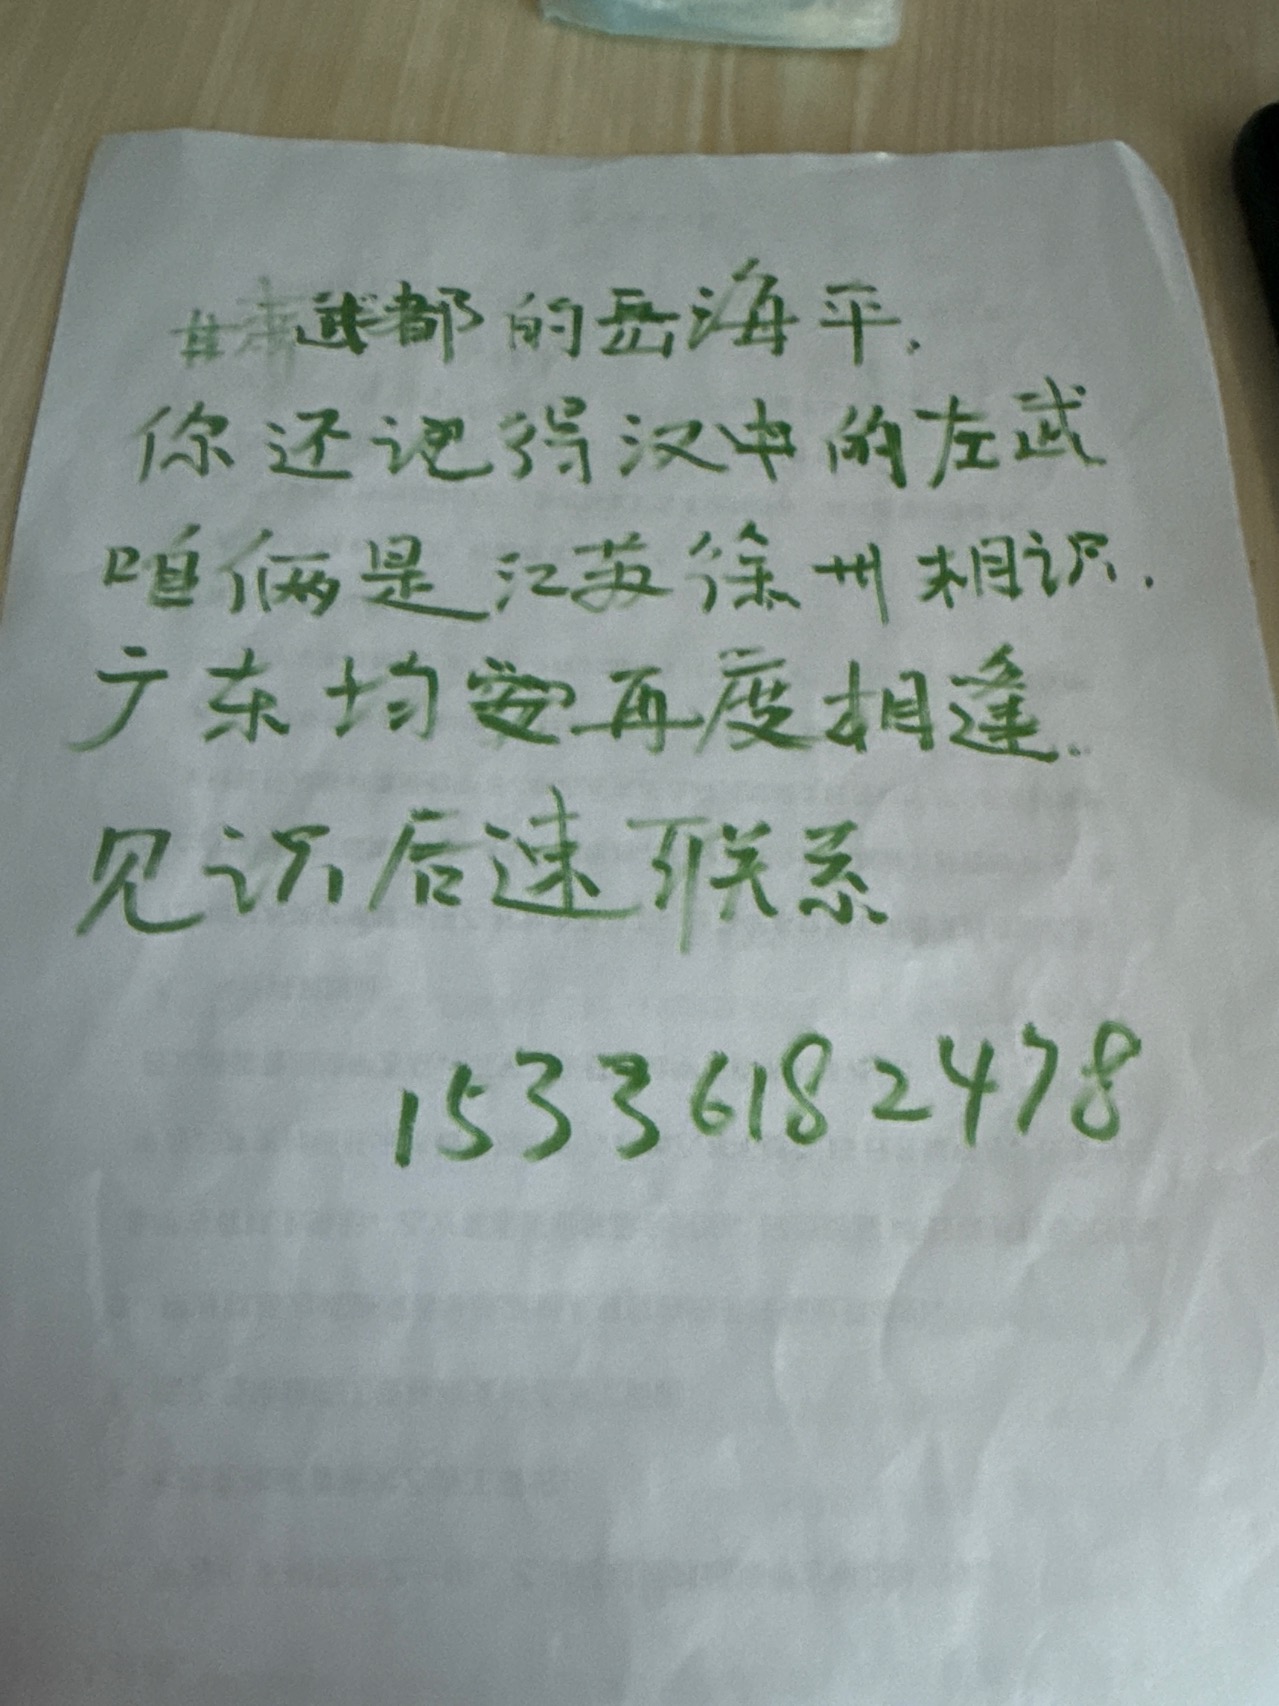 甘肃武都的岳海平.
你还记得汉中的左武
咱俩是江苏徐州相识.
广东均安再度相逢.
见识后速联系
15336182478